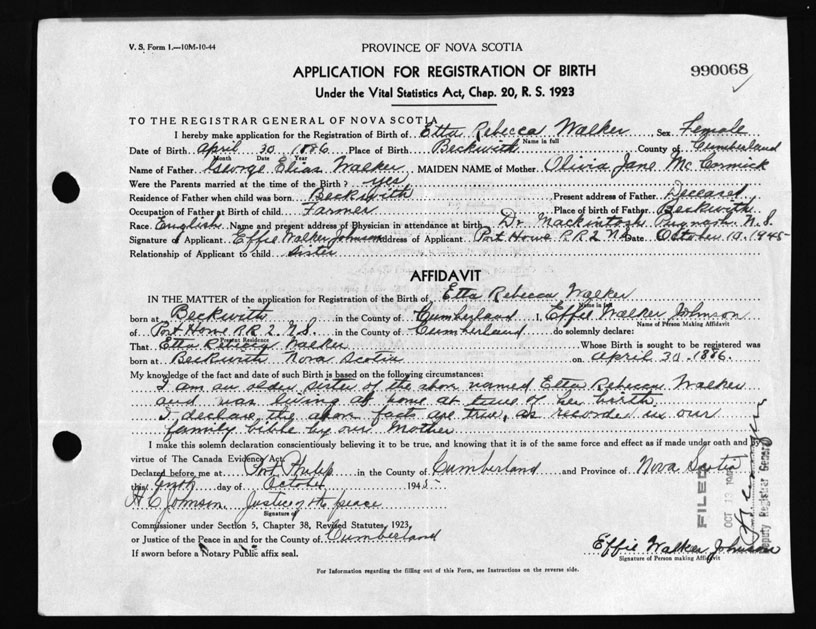 V. S. Form 1.—10M-10-44
PROVINCE OF NOVA SCOTIA
APPLICATION FOR REGISTRATION OF BIRTH
990068
Under the Vital Statistics Act, Chap. 20, R. S. 1923
TO THE REGISTRAR GENERAL OF NOVA SCOTIA
I hereby make application for the Registration of Birth of Etta Rebecca Walker Sex Female
Name in full
Date of Birth April 30 1886 Place of Birth Beckwith County of Cumberland
Month Date Year
Name of Father George Elias Walker MAIDEN NAME of Mother Olivia Jane McCormick
Were the Parents married at the time of the Birth? yes
Residence of Father when child was born Beckwith Present address of Father Deceased
Occupation of Father at Birth of child Farmer Place of birth of Father Beckwith
Race English Name and present address of Physician in attendance at birth Dr Mackintosh Pugwash N.S.
Signature of Applicant Effie Walker Johnson Address of Applicant Port Howe R.R.2 N.S. Date October 10, 1945
Relationship of Applicant to child sister
AFFIDAVIT
IN THE MATTER of the application for Registration of the Birth of Etta Rebecca Walker
Name in full
born at Beckwith in the County of Cumberland I, Effie Walker Johnson
Name of Person Making Affidavit
of Port Howe R.R.2 N.S. in the County of Cumberland do solemnly declare:
Present Residence
That Etta Rebecca Walker Whose Birth is sought to be registered was
born at Beckwith Nova Scotia on April 30 1886.
My knowledge of the fact and date of such Birth is based on the following circumstances:
I am an older sister of the above named Etta Rebecca Walker
and was living at home at time of her birth.
I declare the above facts are true, as recorded in our
family bible by our Mother.
I make this solemn declaration conscientiously believing it to be true, and knowing that it is of the same force and effect as if made under oath and by
virtue of The Canada Evidence Act.
Declared before me at Port Philip in the County of Cumberland and Province of Nova Scotia
this tenth day of October 1945
H C Johnson Justice of the peace
Signature of
Commissioner under Section 5, Chapter 38, Revised Statutes, 1923,
or Justice of the Peace in and for the County of Cumberland
If sworn before a Notary Public affix seal.
Effie Walker Johnson
Signature of Person making Affidavit
FILED
OCT 13
Deputy Registrar General
For Information regarding the filling out of this Form, see Instructions on the reverse side.